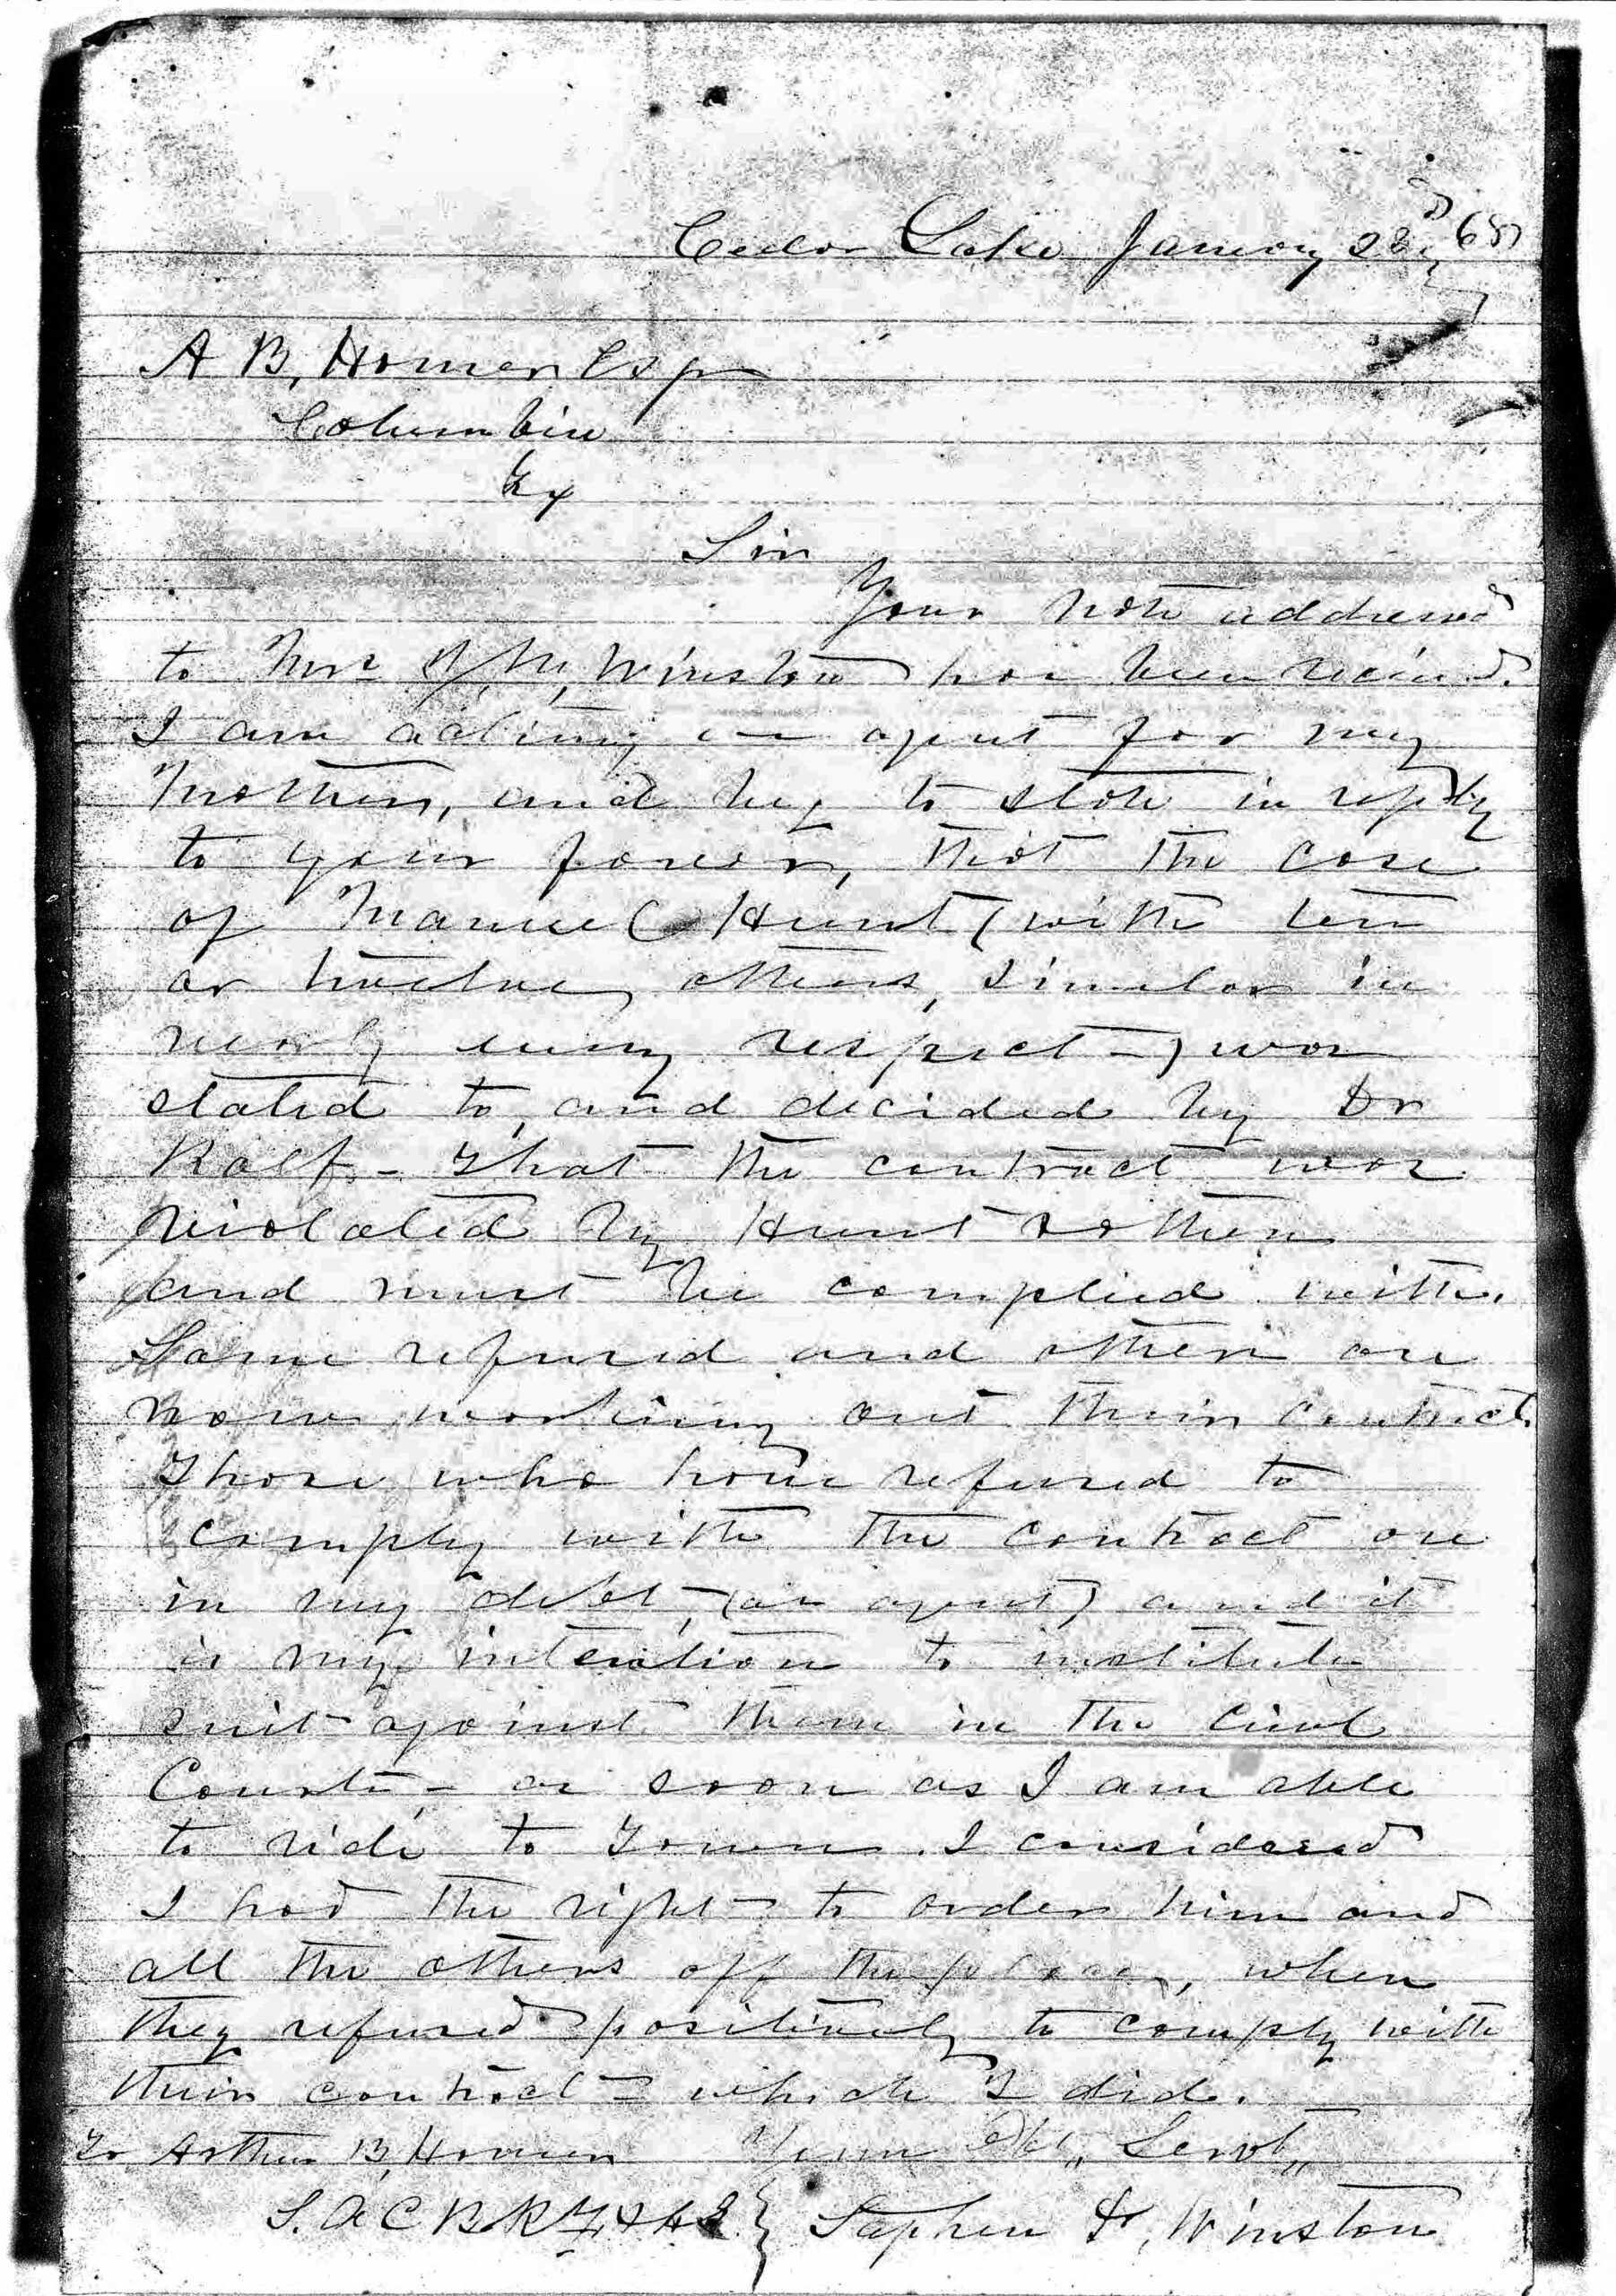 Cedar Lake January 22d 68
A B, Homer Esqr
Columbia
Tx
Sir
Your note addressed
to Mrs M, Winston has been recieved.
I am acting as agent for my
Mother, and beg to state in reply
to your favor, that the case
of Manuel Hunt (with ten
or twelve others, similar in
nearly every respect -) was
stated to, and decided by Dr
Rolf - That the contract was
violated by Hunt & others
and must be complied with.
Some refused and others are
now working out their contract.
Those who have refused to
comply with the contract are
in my debt, - (as agent) and it
is my intention to institute
suit against them in the Civil
Courts, - as soon as I am able
to ride to Town. I considered
I had the right to order him and
all the others off the place, when
they refused positively to comply with
their contract - which I did.
To Arthur B, Homer Your Obt,, Servt,,
S. A C B. R F, & A L } Stephen Winston